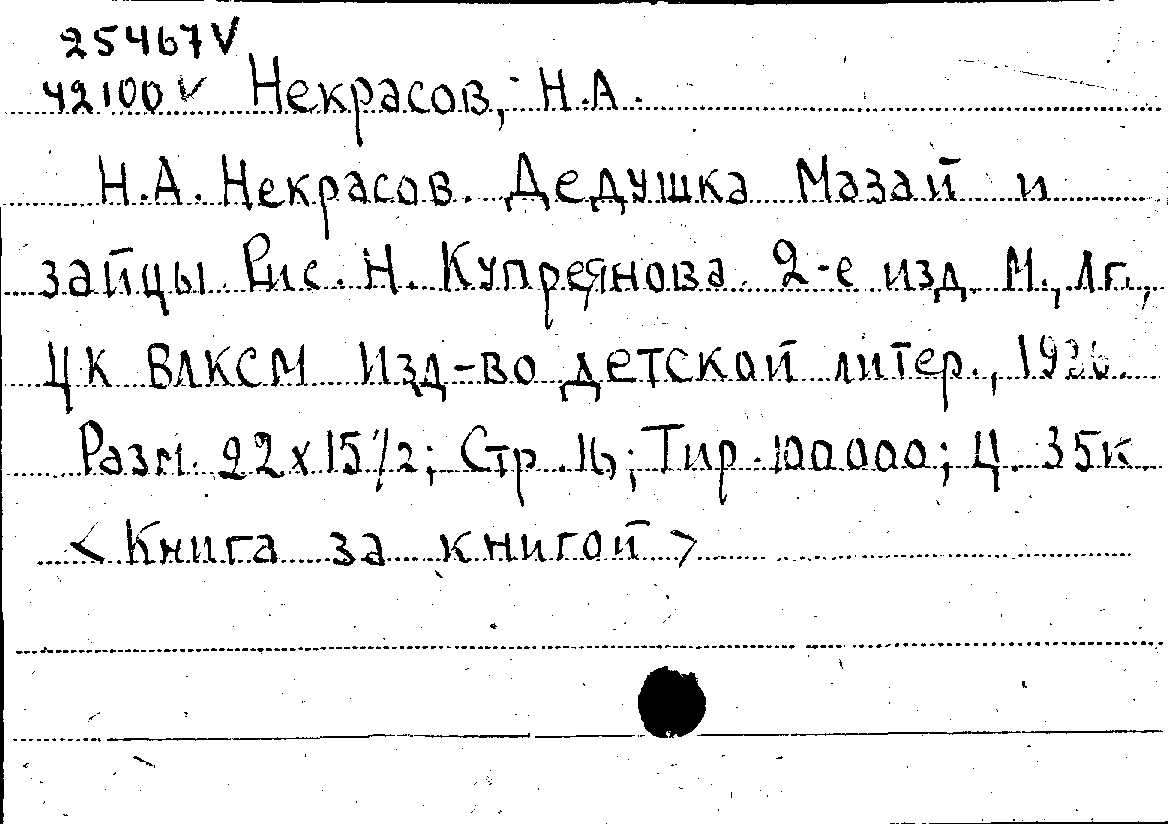 25467V
42100V Некрасов, Н.А.
Н.А. Некрасов. Дедушка Мазай и
зайцы. Рис. Н. Купреянова. 2-е изд. М., Лг.,
ЦК ВЛКСМ Изд-во детской литер., 1936.
Разм. 22х15 1/2; Стр. 16; Тир. 100000; Ц. 35к.
<Книга за книгой>